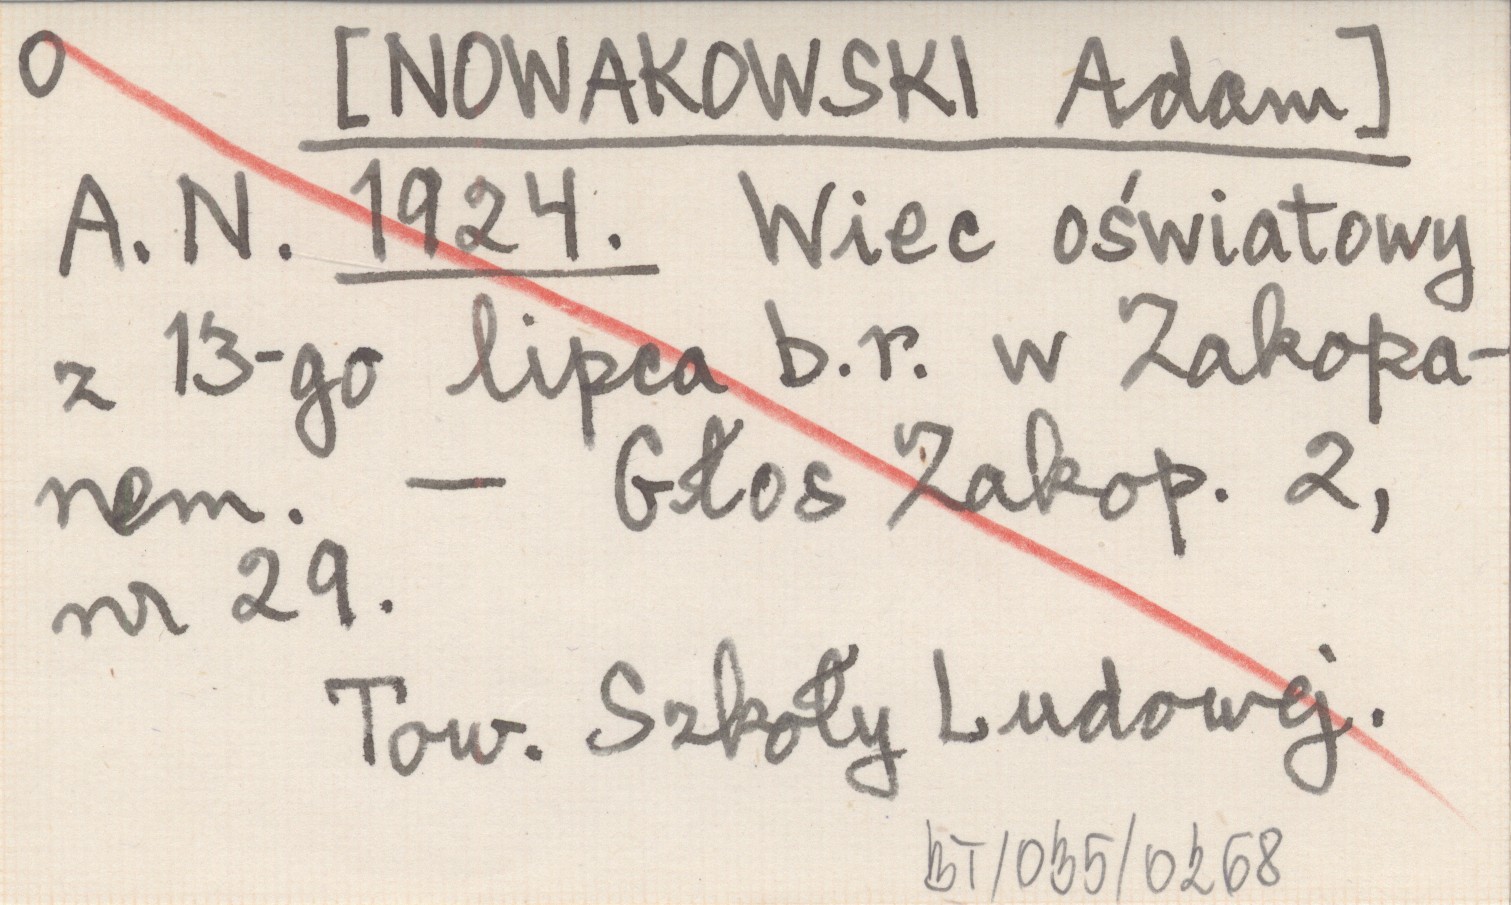 O [NOWAKOWSKI Adam]
A. N. 1924. Wiec oświatowy
z 13-go lipca b.r. w Zakopa-
nem. — Głos Zakop. 2,
nr 29.
Tow. Szkoły Ludowej.
BT/035/0268